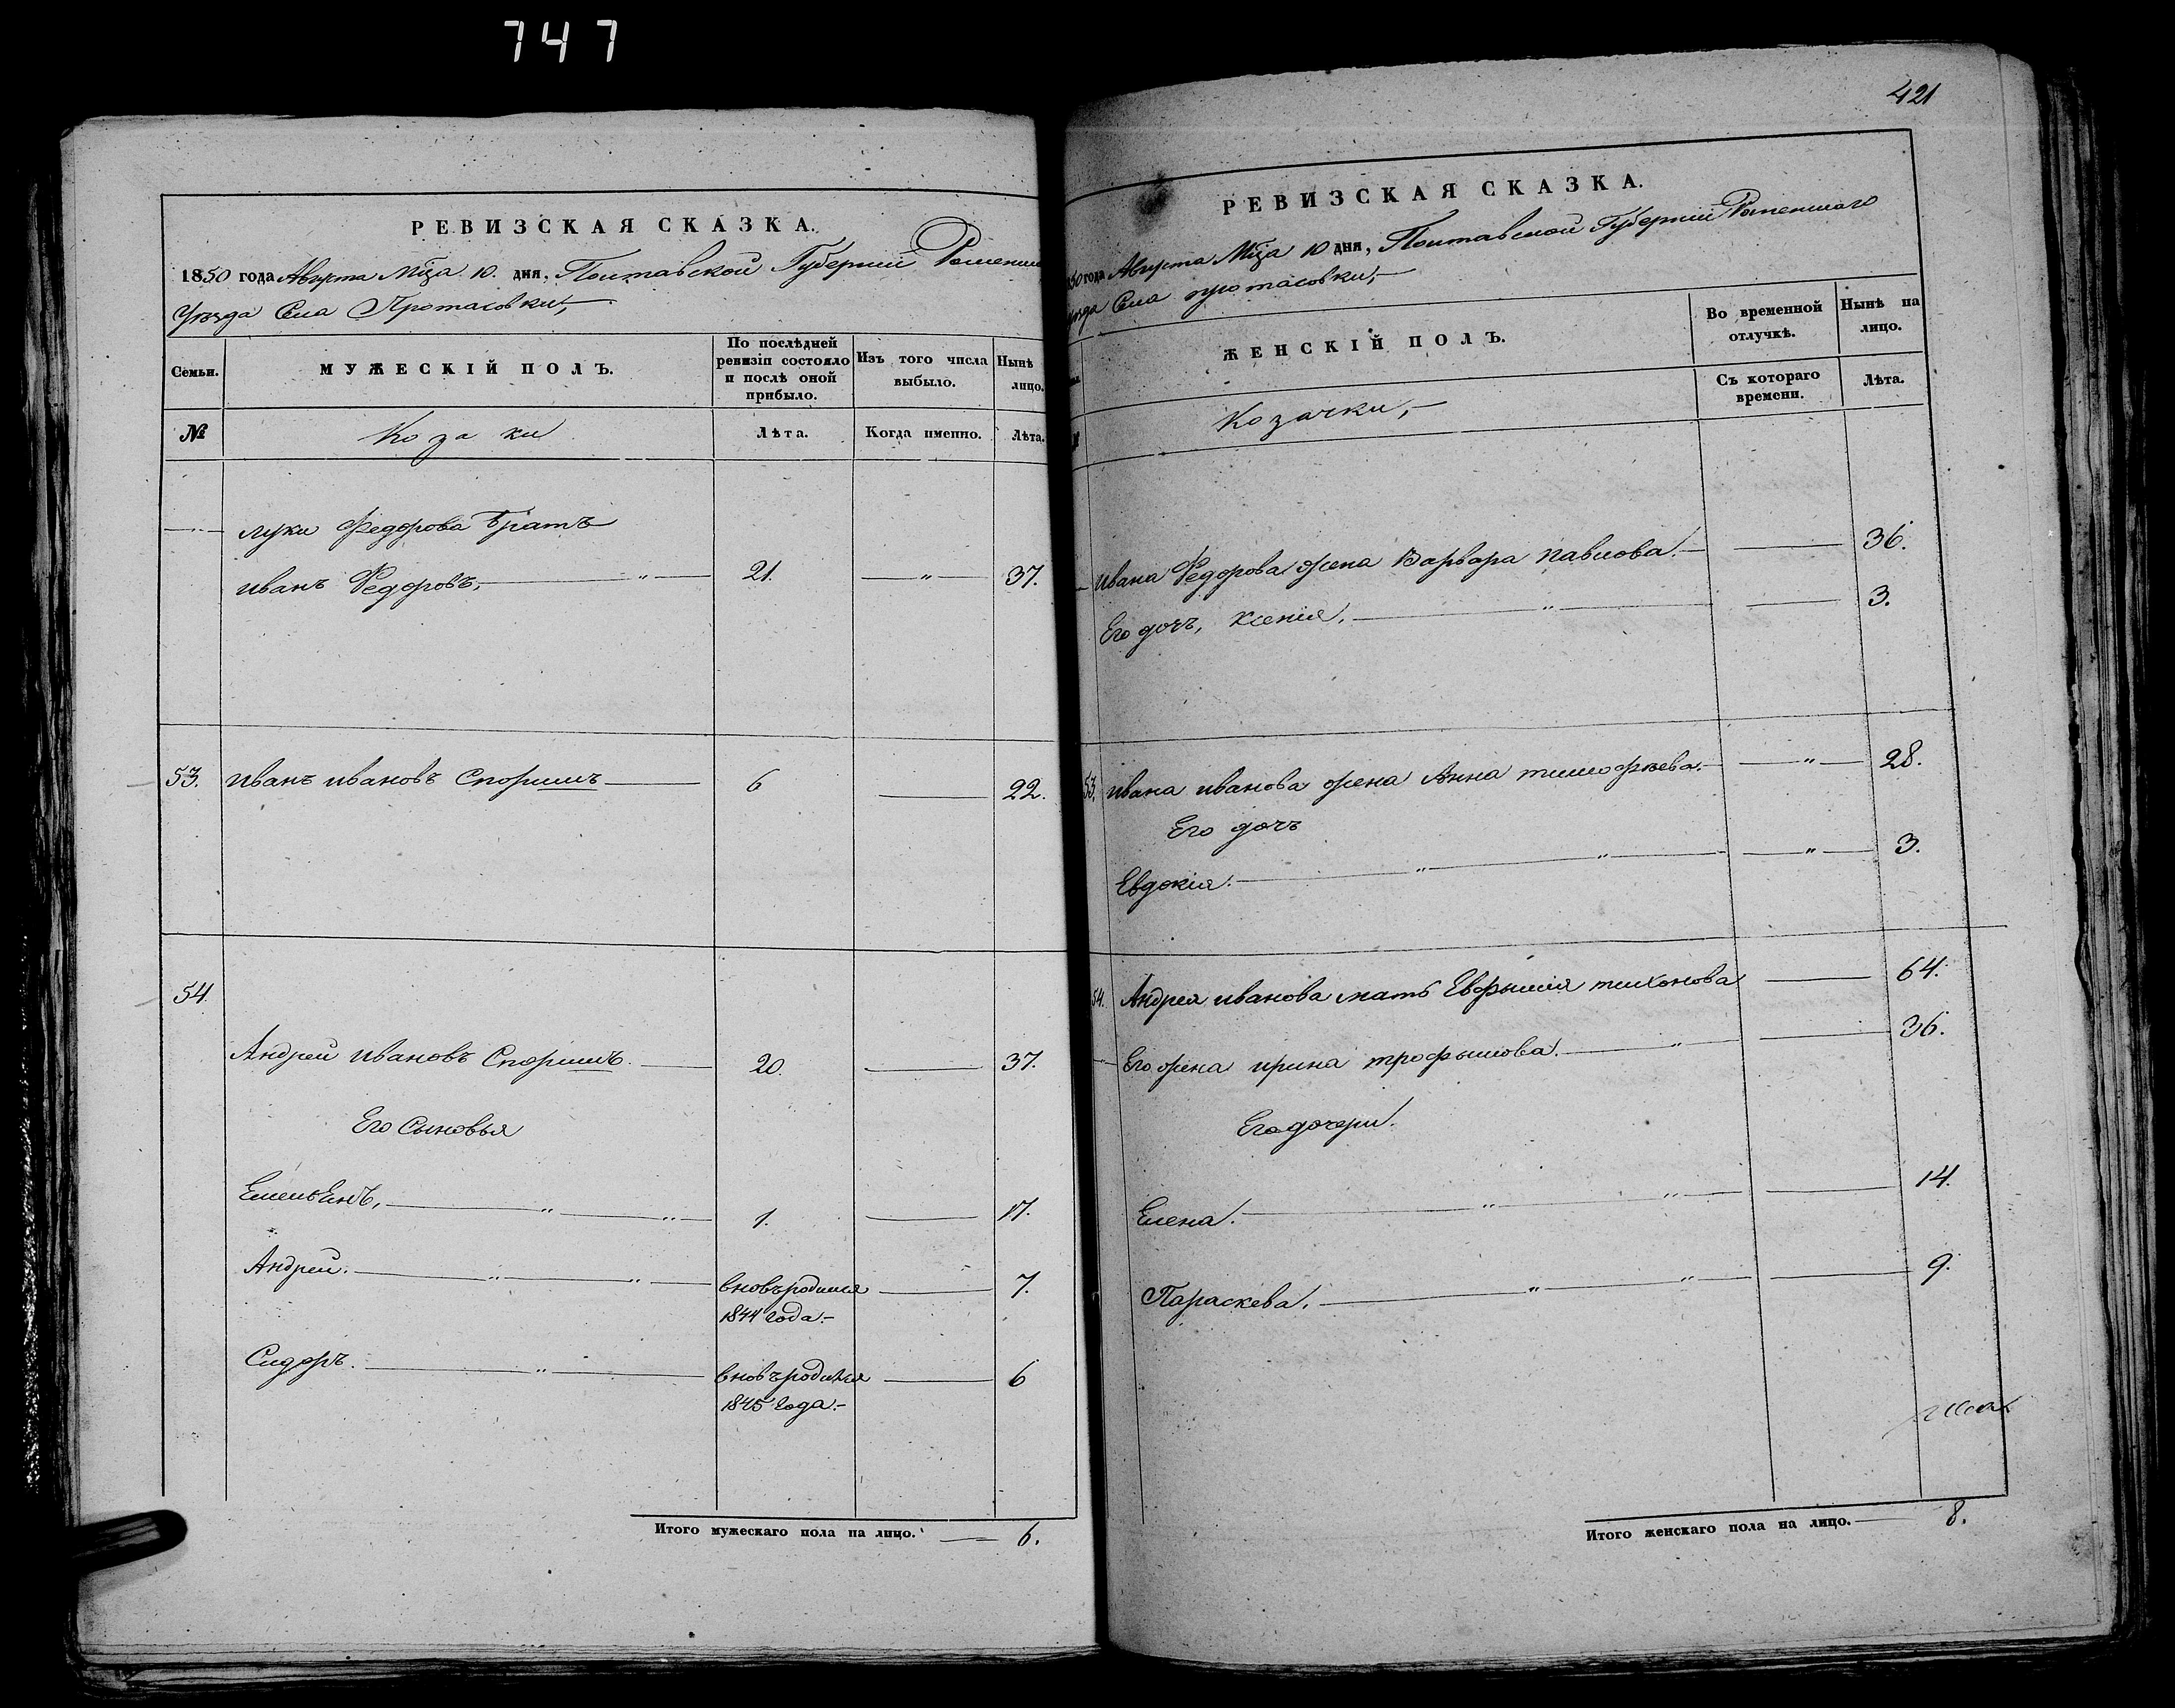 747
РЕВИЗСКАЯ СКАЗКА.
1850 года Августа Мца 10. дня, Полтавской Губернии Роменска
Уѣзда Села Протасовки,
Семьи.
МУЖЕСКІЙ ПОЛЪ.
По послѣдней ревизіи состояло и послѣ оной прибыло.
Изъ того числа выбыло.
Нынѣ лицо.
№
Козаки
Лѣта.
Когда именно.
Лѣта.
Луки Федорова Братъ
Иванъ Федоровъ, " 21. " 37.
53. Иванъ Ивановъ Споришъ 6 22.
54.
Андрей Ивановъ Споришъ. 20. 37.
Его Сыновья
Емельянъ, " " 1. 17.
Андрей. " " вновьродился 7.
1844 года.
Сидоръ. " вновьродился 6
1845 года.
Итого мужескаго пола на лицо. 6.
421
РЕВИЗСКАЯ СКАЗКА.
850 года Августа Мца 10 дня, Полтавской Губерніи Роменскаго
уѣзда Села протасовки,
ЖЕНСКІЙ ПОЛЪ.
Во временной отлучкѣ.
Нынѣ на лицо.
Козачки,
Съ котораго времени.
Лѣта.
Ивана Федорова жена Варвара Павлова. 36.
Его дочь, Ксенія. " 3.
53. Ивана Иванова жена Анна тимофѣева. " 28.
Его дочь
Евдокія. " " " 3.
54. Андрея Иванова мать Евфимія тихонова 64.
Его жена ирина трофимова. " 36.
Его дочери.
Елена. " " 14.
Параскева. " " 9.
Итого женскаго пола на лицо. 8.